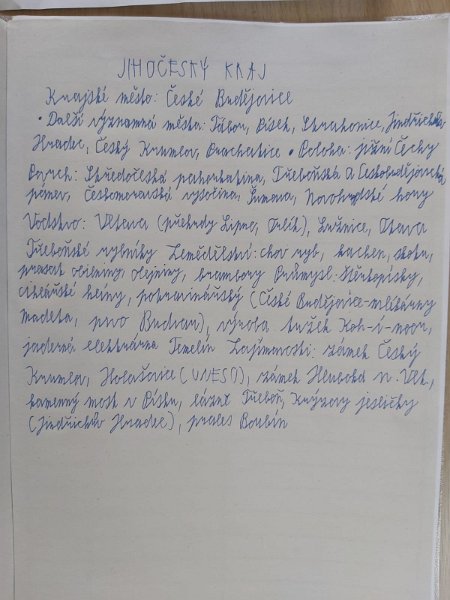 JIHOČESKÝ KRAJ
Krajské město: České Budějovice
• Další významná města: Tábor, Písek, Strakonice, Jindřichův
Hradec, Český Krumlov, Prachatice • Poloha: jižní Čechy
Povrch: Středočeská pahorkatina, Třeboňská a Českobudějovická
pánev, Českomoravská vysočina, Šumava, Novohradské hory
Vodstvo: Vltava (přehrady Lipno, Orlík), Lužnice, Otava
Třeboňské rybníky Zemědělství: chov ryb, kachen, skotu,
prasat obilniny, olejniny, brambory Průmysl: štěrkopísky,
cihlářské hlíny, potravinářský (České Budějovice-mlékárny
madeta, pivo Budvar), výroba tužek Koh-i-noor,
jaderná elektrárna Temelín Zajímavosti: zámek Český
Krumlov, Holašovice (UNESO), zámek Hluboká n. Vlt.,
kamenný most v Písku, lázně Třeboň, Krýzovy jesličky
(Jindřichův Hradec), prales Boubín